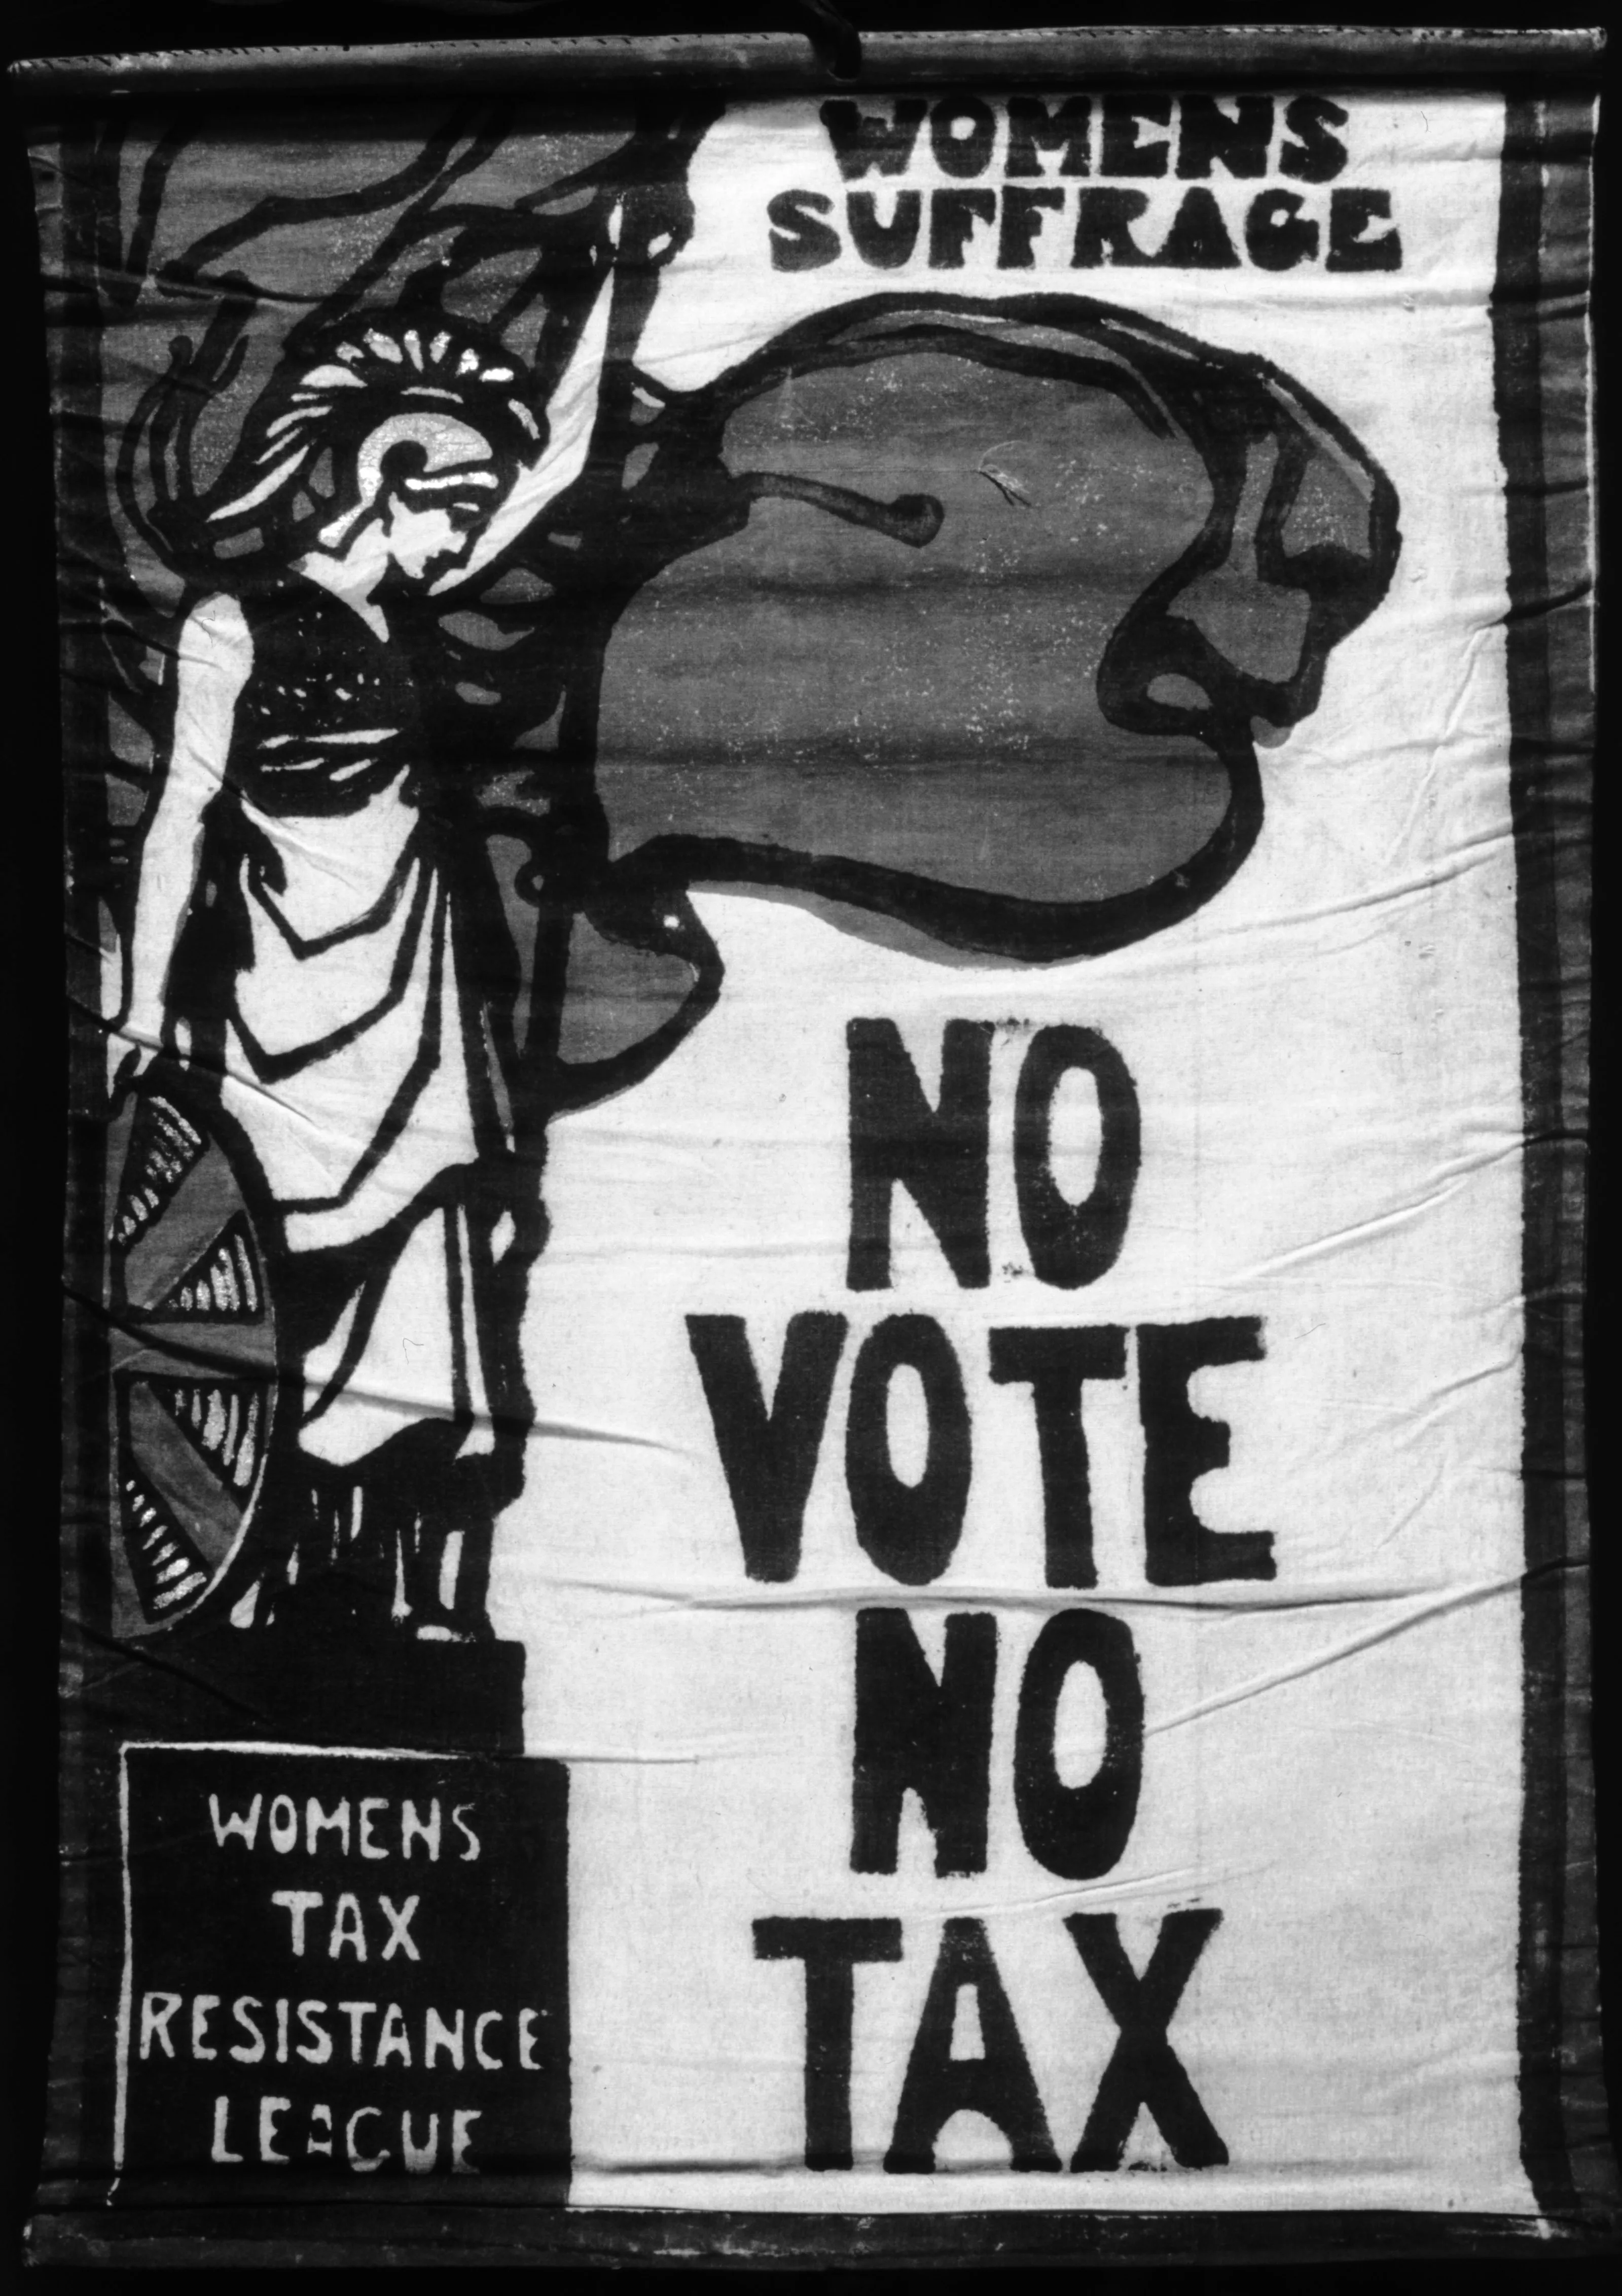 WOMENS
SUFFRAGE
NO
VOTE
NO
TAX
WOMENS
TAX
RESISTANCE
LEAGUE